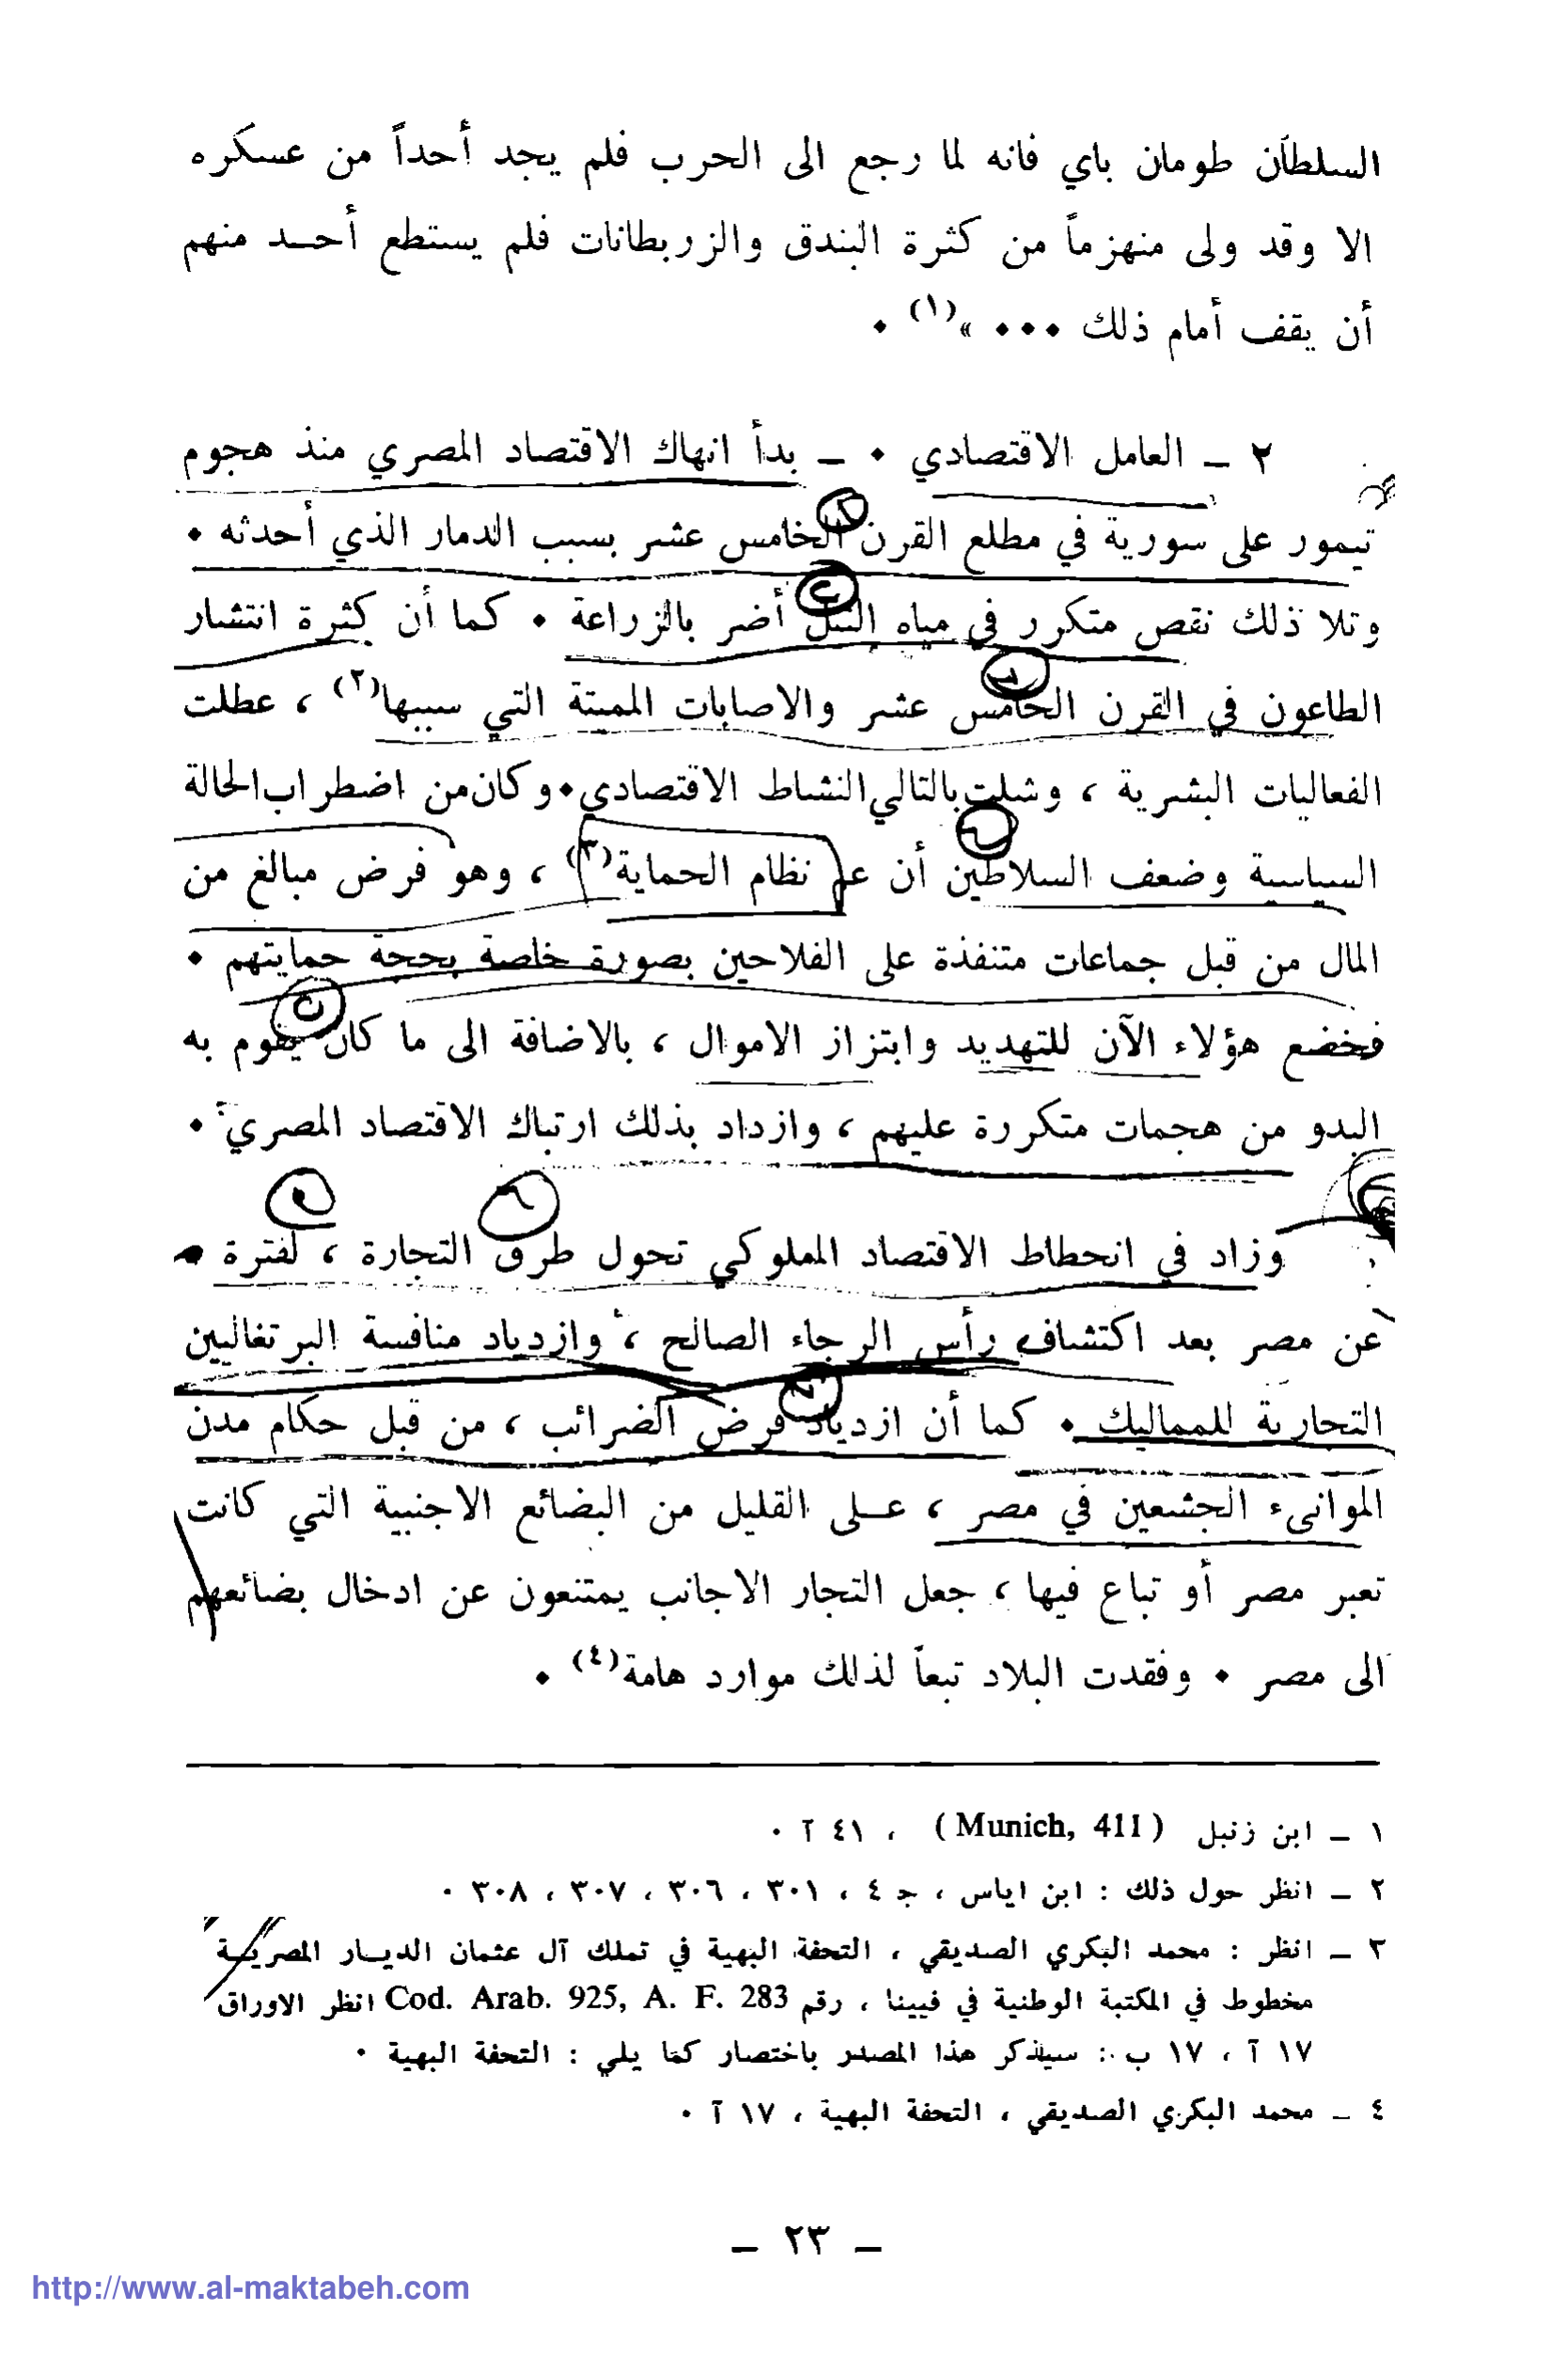 السلطان طومان باي فانه لما رجع الى الحرب فلم يجد أحداً من عسكره
الا وقد ولى منهزماً من كثرة البندق والزربطانات فلم يستطع أحد منهم
أن يقف أمام ذلك ٠٠٠ »(١) ٠
٢ ـ العامل الاقتصادي ٠ ـ بدأ انهاك الاقتصاد المصري منذ هجوم
تيمور على سورية في مطلع القرن الخامس عشر بسبب الدمار الذي أحدثه ٠
وتلا ذلك نقص متكرر في مياه النيل أضر بالزراعة ٠ كما أن كثرة انتشار
الطاعون في القرن الخامس عشر والاصابات المميتة التي سببها(٢) ، عطلت
الفعاليات البشرية ، وشلت بالتالي النشاط الاقتصادي ٠ وكان من اضطراب الحالة
السياسية وضعف السلاطين أن عم نظام الحماية(٣) ، وهو فرض مبالغ من
المال من قبل جماعات متنفذة على الفلاحين بصورة خاصة بحجة حمايتهم ٠
فخضع هؤلاء الآن للتهديد وابتزاز الاموال ، بالاضافة الى ما كان يقوم به
البدو من هجمات متكررة عليهم ، وازداد بذلك ارتباك الاقتصاد المصري ٠
وزاد في انحطاط الاقتصاد المملوكي تحول طرق التجارة ، لفترة
عن مصر بعد اكتشاف رأس الرجاء الصالح ، وازدياد منافسة البرتغاليين
التجارية للمماليك ٠ كما أن ازدياد فرض الضرائب ، من قبل حكام مدن
الموانىء الجشعين في مصر ، على القليل من البضائع الاجنبية التي كانت
تعبر مصر أو تباع فيها ، جعل التجار الاجانب يمتنعون عن ادخال بضائعهم
الى مصر ٠ وفقدت البلاد تبعاً لذلك موارد هامة(٤) ٠
١ ـ ابن زنبل (Munich, 411) ، ٤١ آ ٠
٢ ـ انظر حول ذلك : ابن اياس ، ج ٤ ، ٣٠١ ، ٣٠٦ ، ٣٠٧ ، ٣٠٨ ٠
٣ ـ انظر : محمد البكري الصديقي ، التحفة البهية في تملك آل عثمان الديار المصرية
مخطوط في المكتبة الوطنية في فيينا ، رقم Cod. Arab. 925, A. F. 283 انظر الاوراق
١٧ آ ، ١٧ ب : سيذكر هذا المصدر باختصار كما يلي : التحفة البهية ٠
٤ ـ محمد البكري الصديقي ، التحفة البهية ، ١٧ آ ٠
ـ ٢٣ ـ
http://www.al-maktabeh.com